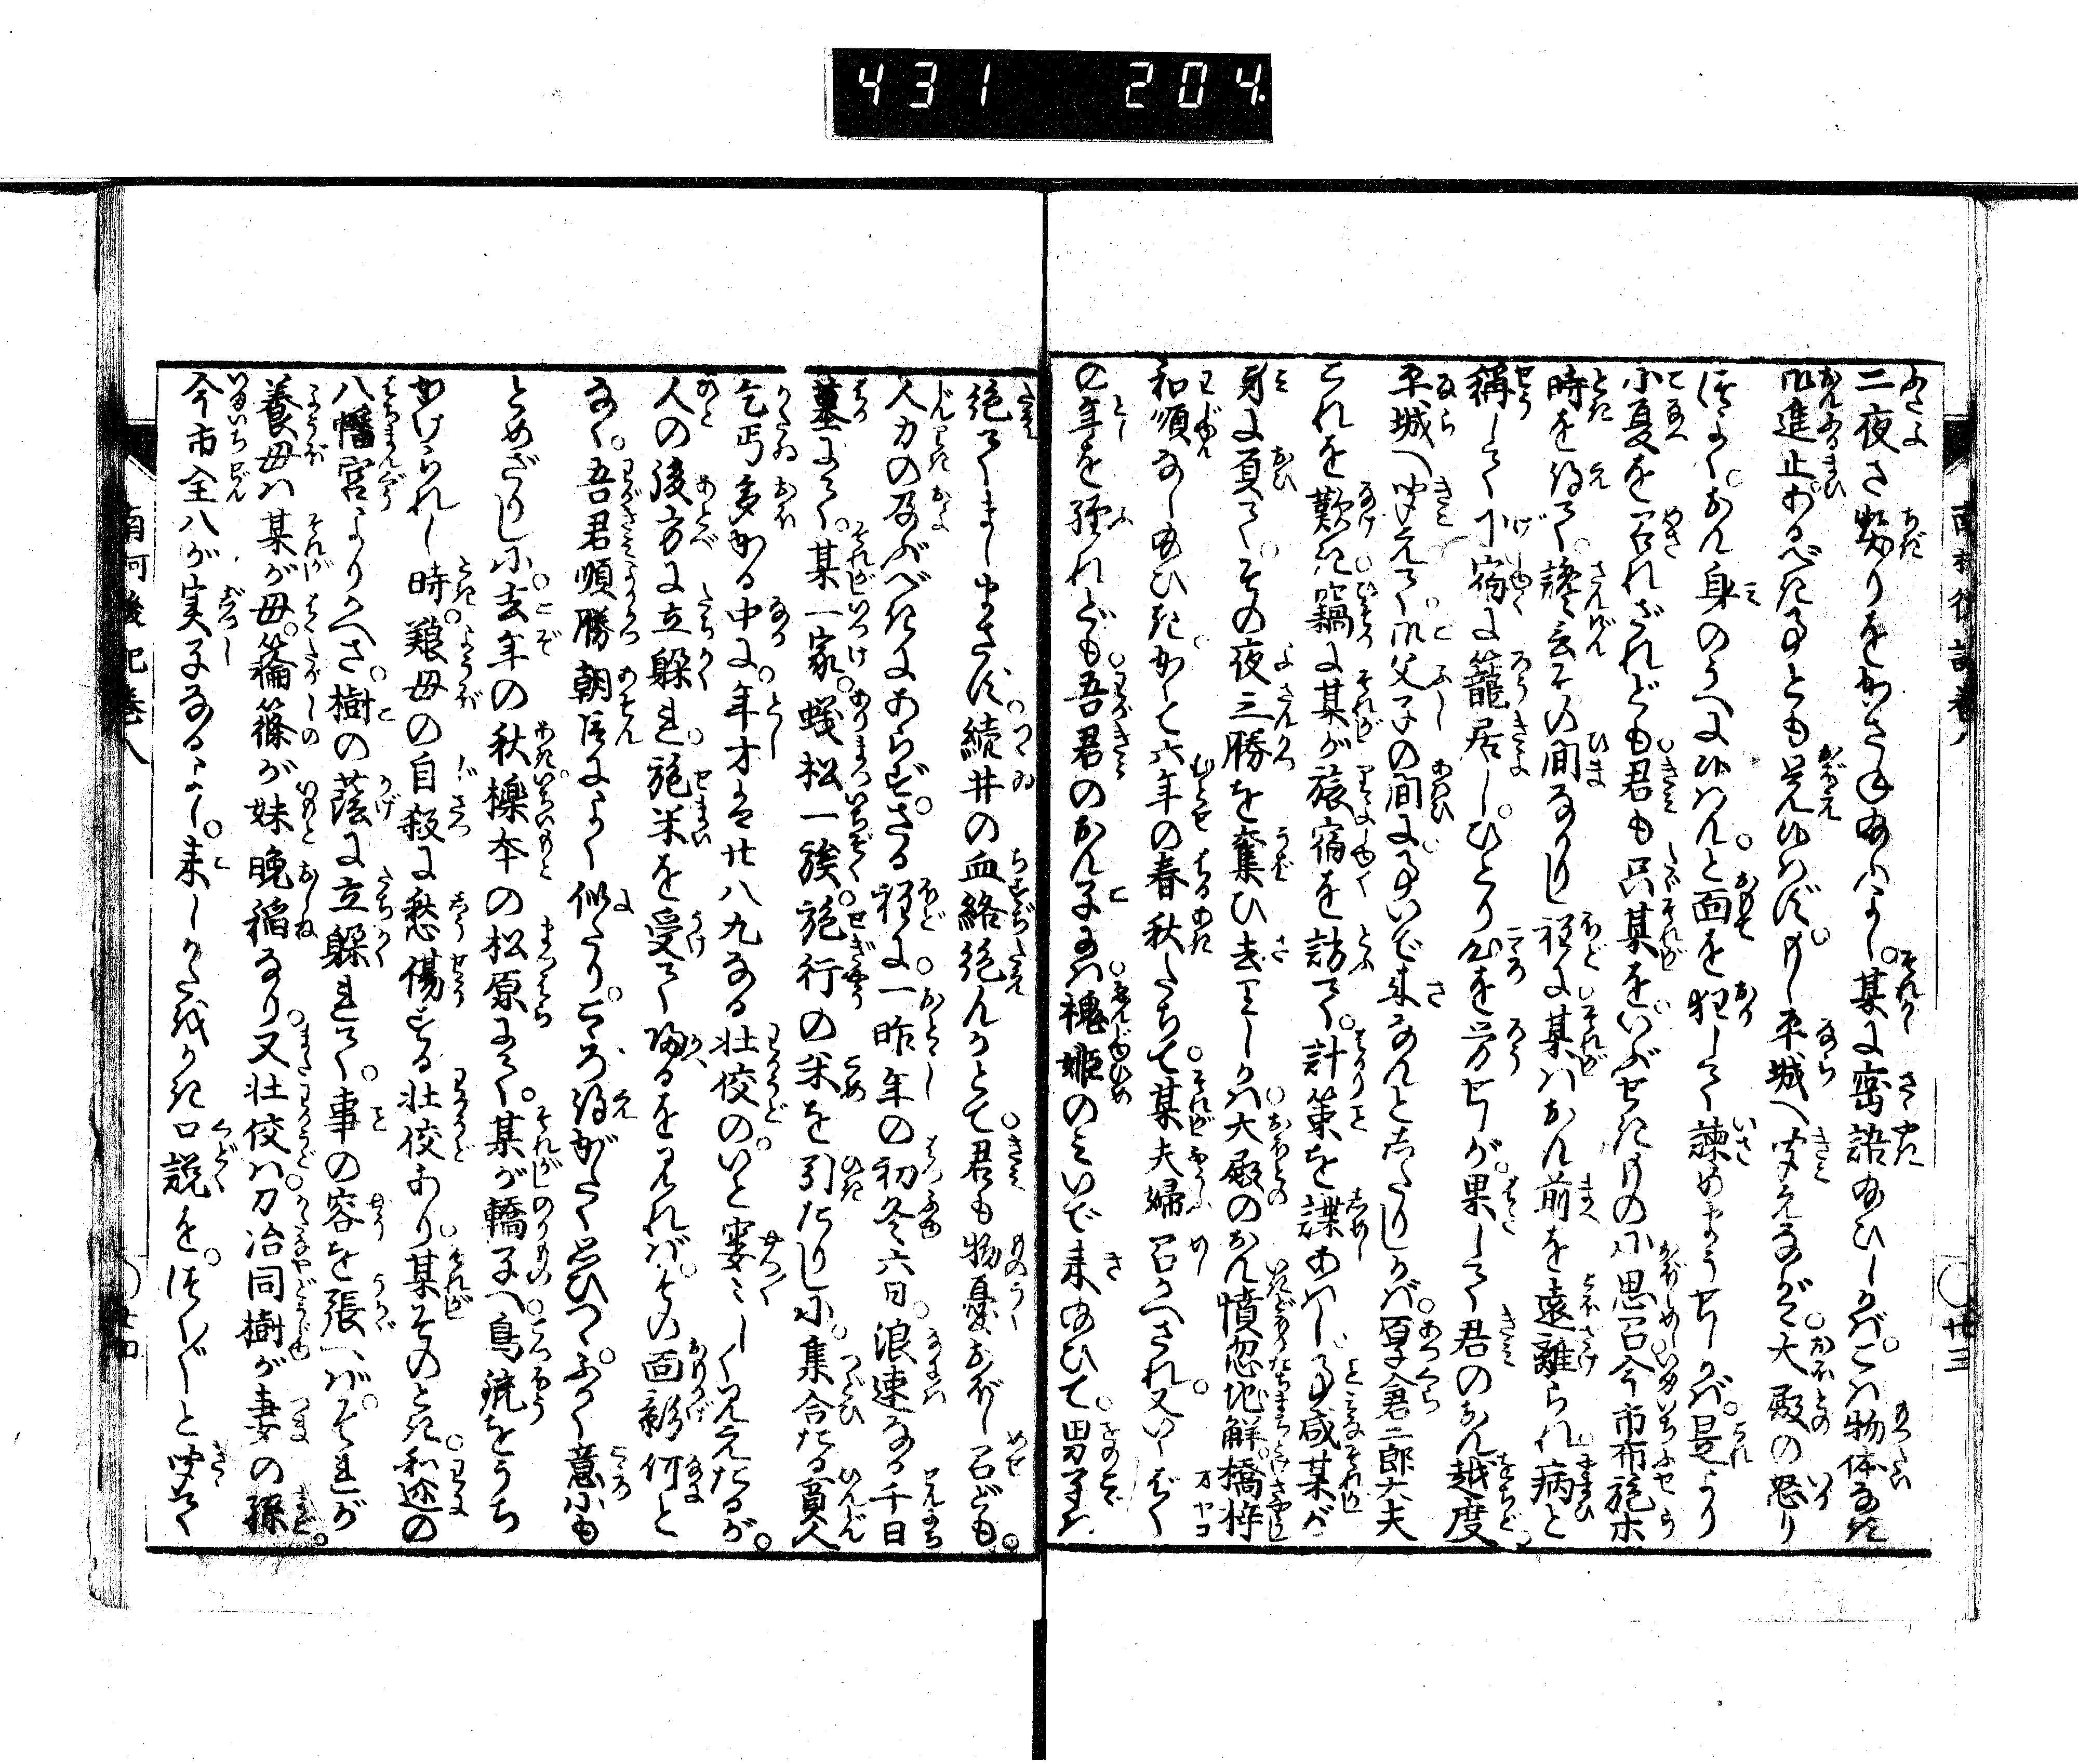 431 204
二夜さ契りをかさね給ふよし。某に密語給ひしかば。こは物体なき
御進止。あるべき事とも覚候はず。もし平城へ聞えなば。大殿の怒り
はげしく。おん身のうへに候はんと面を犯して諫めまうせしかば。是より
小夏を召れざれども。君も只某を。いぶせきものに思召。今市布施ホ
時を得て。讒言その間なかりし程に。某はおん前を遠離られ。病と
称して下宿に籠居し。ひとり心を労せしが。果して君のおん越度
平城へ聞えて。御父子の間に事いで来なんとしたりしかば。厚倉二郎大夫
これを歎き。竊に某が旅宿を訪て。計策を謀あはし。事咸某が
身に負て。その夜三勝を奪ひ去りしかば。大殿のおん憤忽地解。橋梓
和順なし給ひき。かくて六年の春秋たちて某夫婦召かへされ。又いくばく
の年を経れども。吾君のおん子には。槵姫のみいで来給ひて。男子は
絶てましまさず。続井の血絡絶んかとて。君も物憂おぼし召ども。
人力の及ぶべきにあらず。さる程に。一昨年の初冬六日。浪速なる千日
墓にて。某一家。蟻松一族。施行の米を引たりしに。集合たる貧人
乞丐多かる中に。年才は廿八九なる壮佼の。いと窶々しく見えたるが。
人の後方に立躱れ。施米を受て還るを見れば。その面影何と
なく。吾君順勝朝臣によく似たり。こゝろ得がたく思ひつゝ。ふかく意にも
とめざりしに。去年の秋櫟本の松原にて。某が轎子へ鳥銃をうち
かけられし時。養母の自殺に愁傷する壮佼あり。某そのとき和迩の
八幡宮よりかへさ。樹の蔭に立躱れて。事の容を張へば。それが
養母は某が母。籥篠が妹晩稲なり。又壮佼は刀冶同樹が妻の孫。
今市全八が実子なるよし。来しかたゆくすゑ口説を。つく〲と聞て
南柯後記巻八
○廿三
南柯後記巻八
○廿四